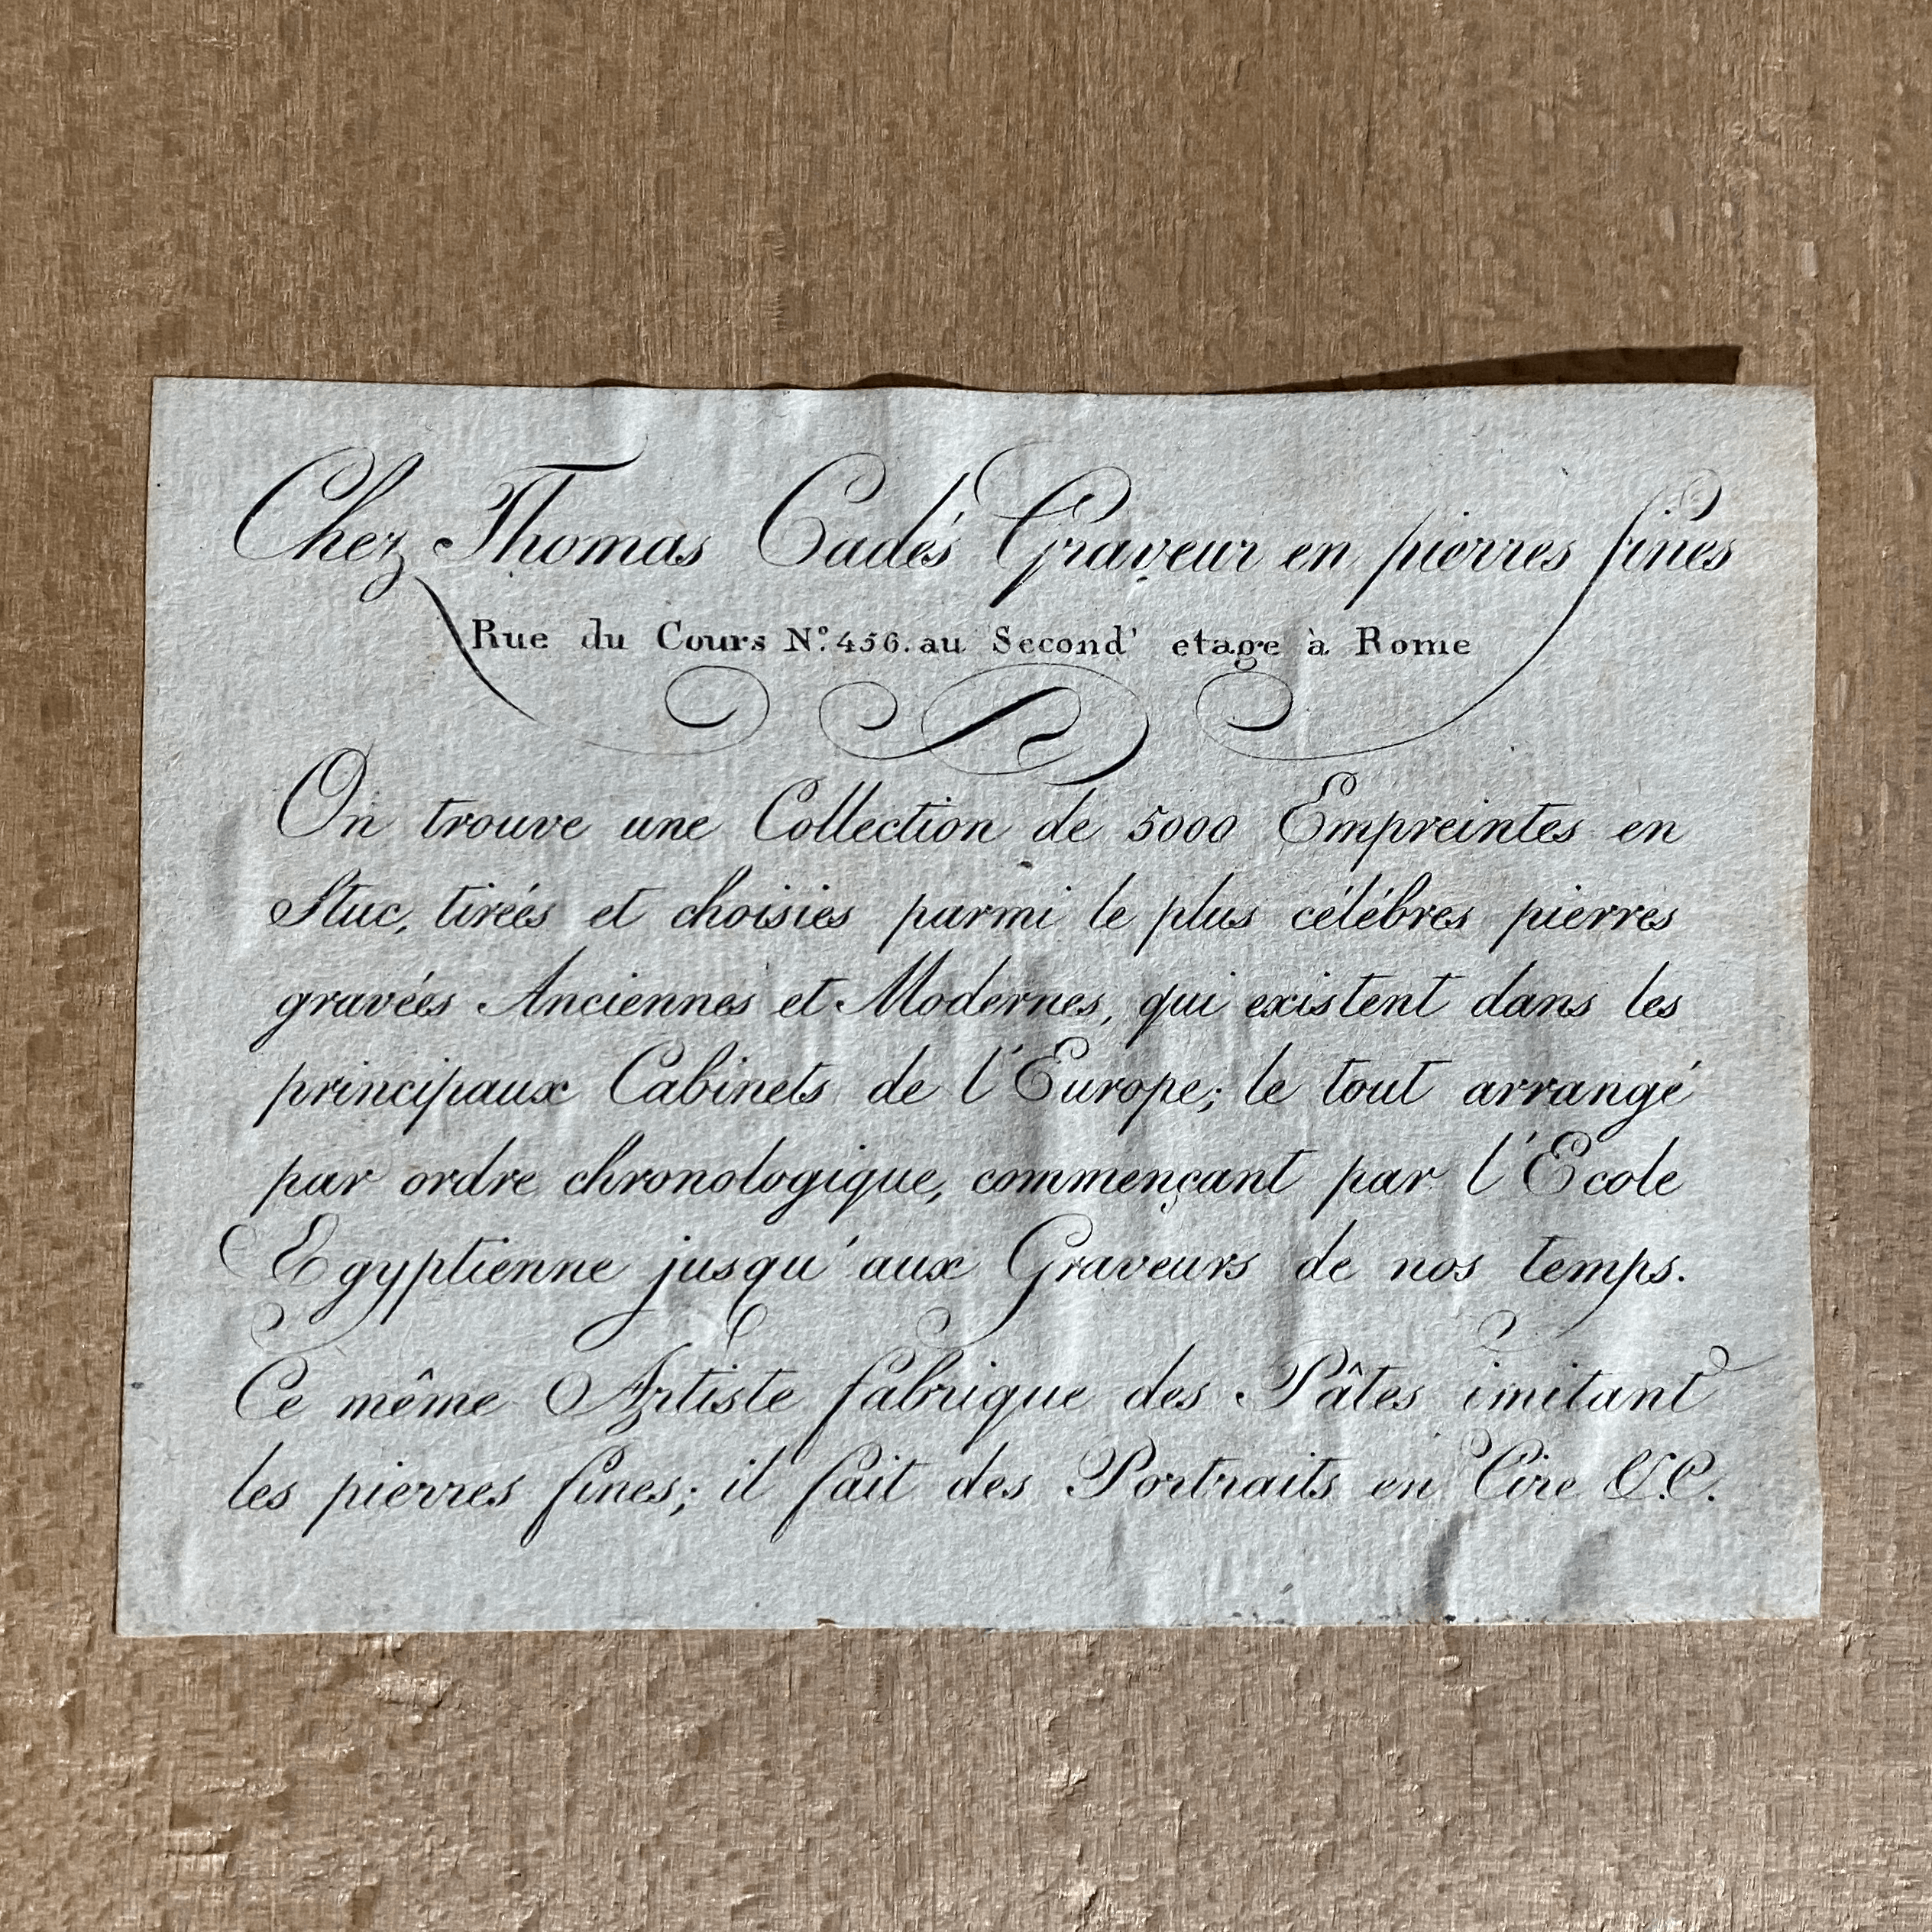 Chez Thomas Cadés Graveur en pierres fines
Rue du Cours N.º 456. au Second' etage à Rome
On trouve une Collection de 5000 Empreintes en
Stuc, tirées et choisies parmi le plus célébres pierres
gravées Anciennes et Modernes, qui existent dans les
principaux Cabinets de l'Europe; le tout arrangé
par ordre chronologique, commençant par l'Ecole
Egyptienne jusqu'aux Graveurs de nos temps.
Ce même Artiste fabrique des Pâtes imitant
les pierres fines; il fait des Portraits en Cire &.C.